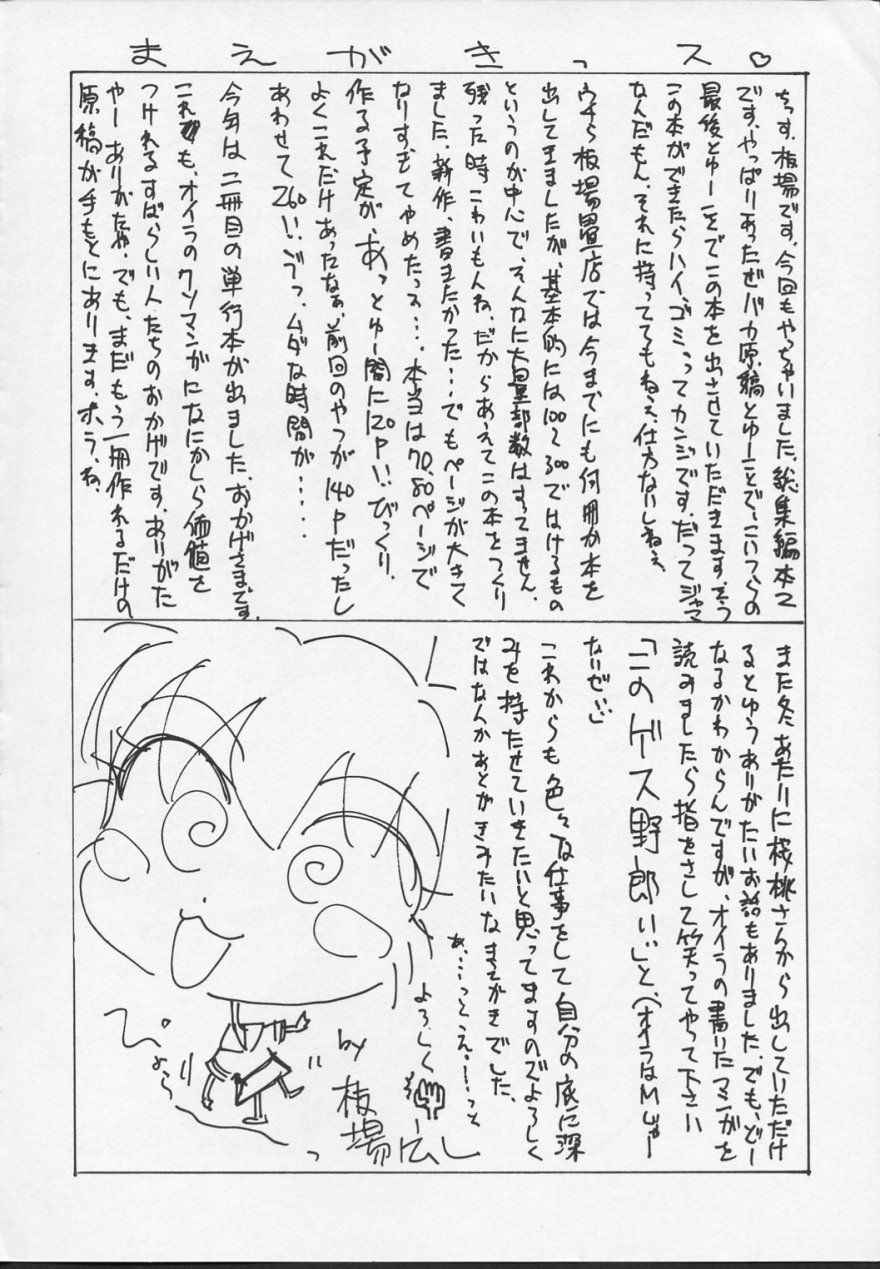 まえがきっス♡
ちっす、板場です。今回もやっちゃいました、総集編本で
です。やっぱりあったぜバカ原稿とゆーことで、こいつらの
最後とゆーことでこの本を出させていただきます。そう
この本ができたらハイ、ゴミってカンジです。だってジャマ
なんだもん、それに持っててもねぇ、仕方ないしねぇ
ウチら板場畳店では今までにも何冊か本を
出してきましたが、基本的には100〜300ではけるもの
というのが中心で、そんなに大量部数はすってません。
残った時こわいもんね、だからあえてこの本をつくり
ました、新作、書きたかった…でもページが大きく
なりすぎてやめたっス…本当は70,80ページで
作る予定が、あっとゆー間に120P!!びっくり、
よくこれだけあったなぁ、前回のやつが140Pだったし
あわせて260!!、ムダな時間が……
今年は二冊目の単行本が出ました、おかげさまです。
これも、オイラのクソマンガになにかしら価値を
つけれるすばらしい人たちのおかげです、ありがた
やーありがたや、でも、まだもう一冊作れるだけの
原稿が手もとにあります、ホラ、ね、
また冬あたりに桜桃さんから出していただけ
るとゆうありがたいお話もありました、でも、どー
なるかわからんですが、オイラの書いたマンガを
読みましたら指をさして笑ってやって下さい
「このゲース野郎!!」とペオイラはMじゃー
ないぜい」
これからも色々な仕事をして自分の底に深
みを持たせていきたいと思ってますのでよろしく
ではなんかあとがきみたいなまえがきでした、
あ…っとえ…っと
よろしく
by 板場広し